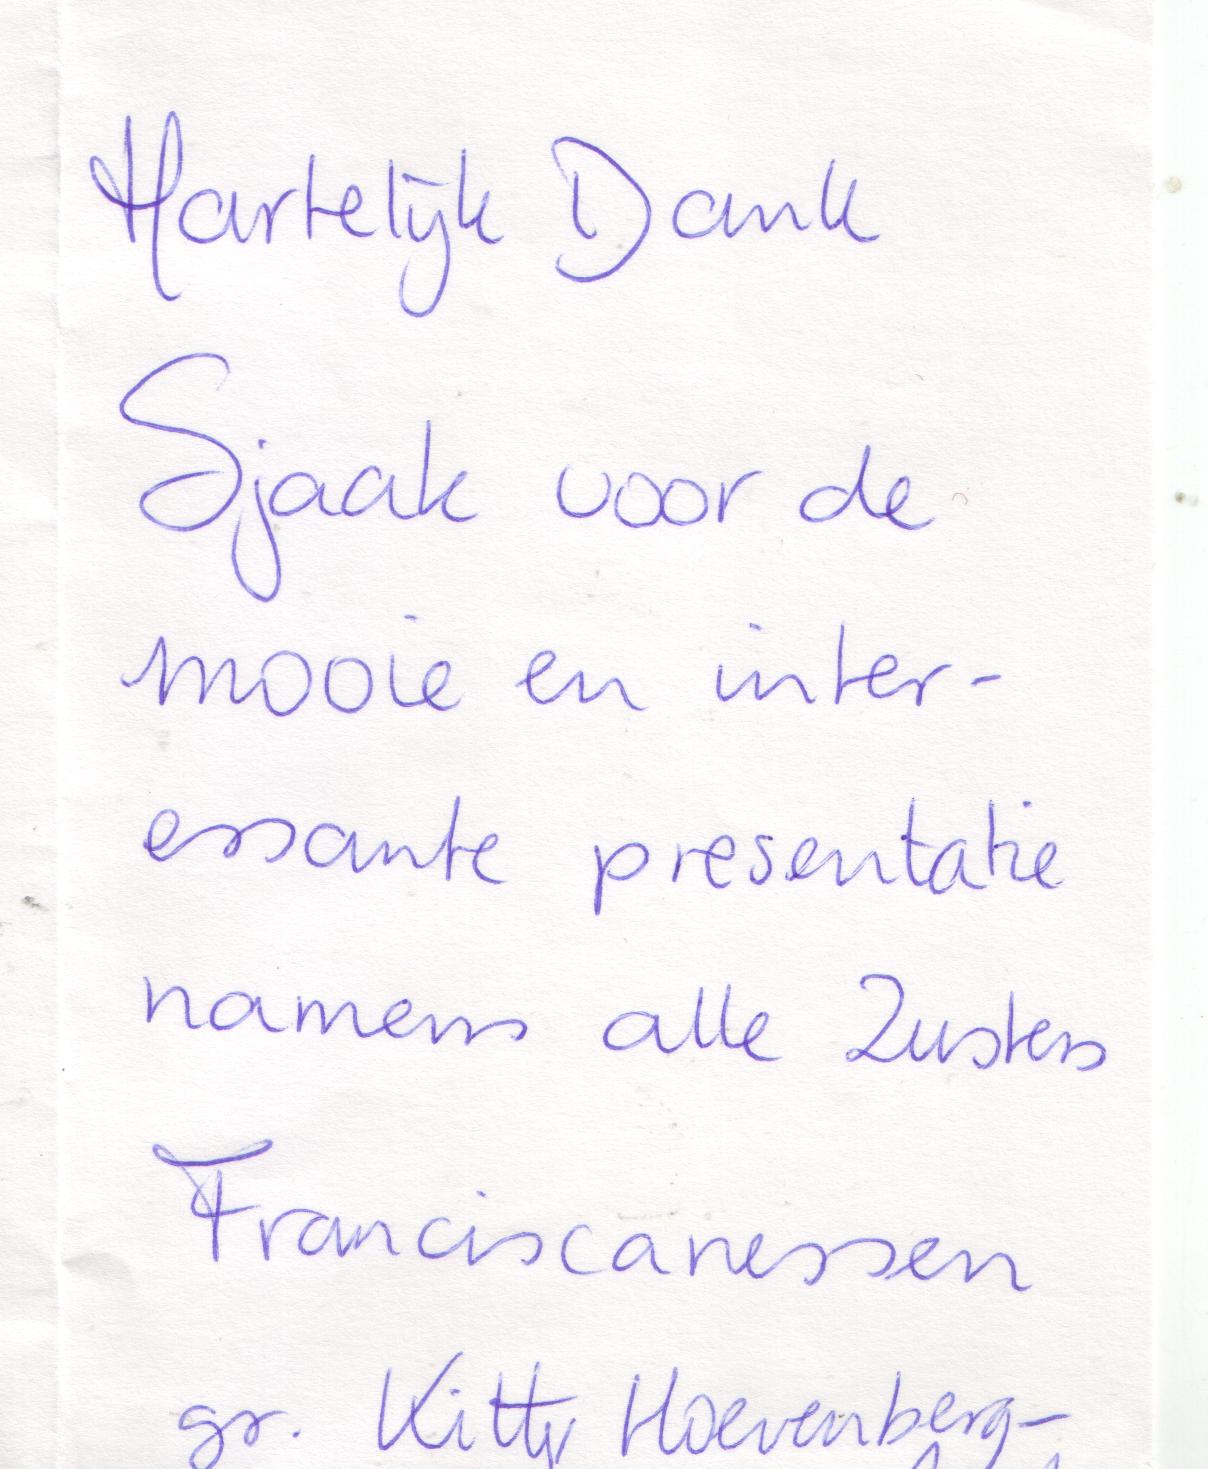 Hartelijk Dank
Sjaak voor de
mooie en inter-
essante presentatie
namens alle Zusters
Franciscanessen
gr. Kitty Hoevenberg-